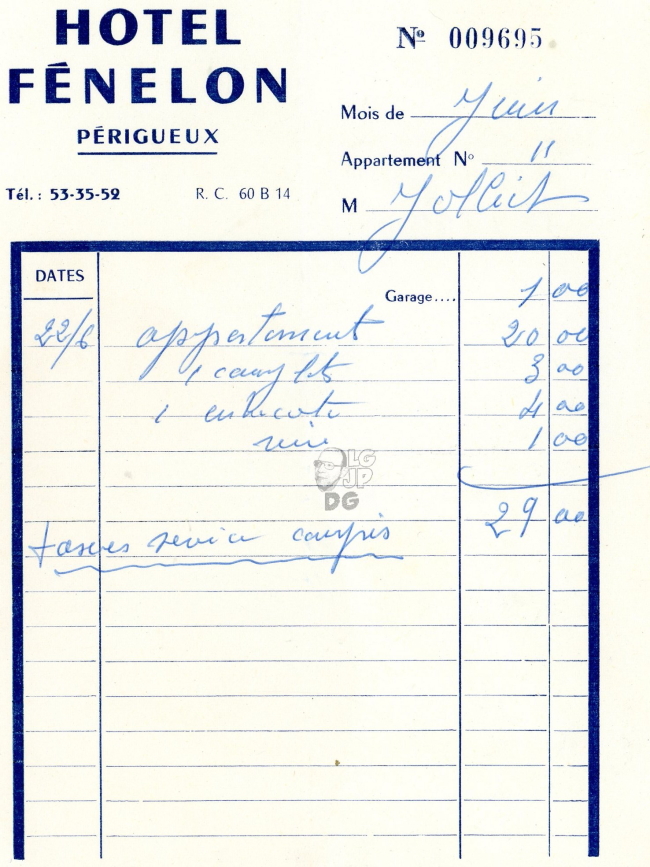 HOTEL
FÉNELON
PÉRIGUEUX
Tél. : 53-35-52 R. C. 60 B 14
Nº 009695
Mois de Juin
Appartement Nº 11
M
DATES
Garage.... 1 00
22/6 appartement 20 00
1 complet 3 00
1 entrecote 4 00
1 00
LG
JP
DG
29 00
taxes service compris